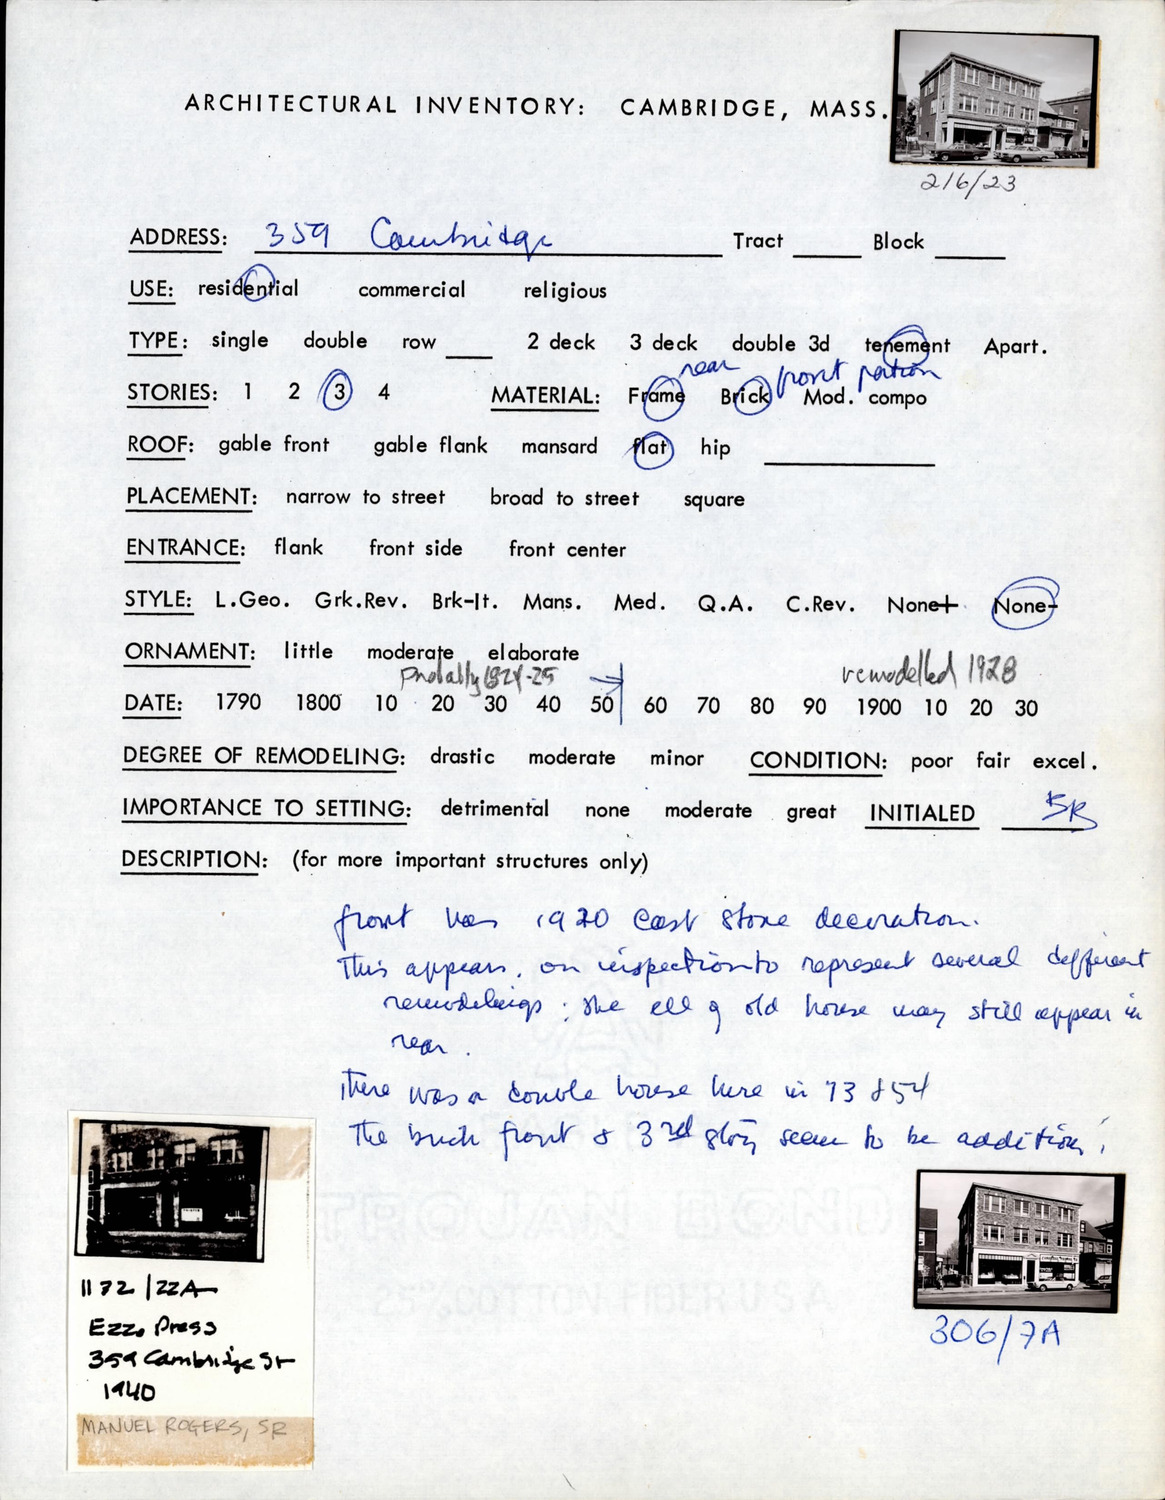 ARCHITECTURAL INVENTORY: CAMBRIDGE, MASS.
216/23
ADDRESS: 359 Cambridge Tract Block
USE: residential commercial religious
TYPE: single double row 2 deck 3 deck double 3d tenement Apart.
rear front portion
STORIES: 1 2 3 4 MATERIAL: Frame Brick Mod. compo
ROOF: gable front gable flank mansard flat hip
PLACEMENT: narrow to street broad to street square
ENTRANCE: flank front side front center
STYLE: L.Geo. Grk.Rev. Brk-It. Mans. Med. Q.A. C.Rev. None+ None-
ORNAMENT: little moderate elaborate
probally 1824-25 remodelled 1928
DATE: 1790 1800 10 20 30 40 50 60 70 80 90 1900 10 20 30
DEGREE OF REMODELING: drastic moderate minor CONDITION: poor fair excel.
IMPORTANCE TO SETTING: detrimental none moderate great INITIALED SR
DESCRIPTION: (for more important structures only)
front has 1920 cast stone decoration.
This appears, on inspection to represent several different
remodelings; the ell of old house may still appear in
rear.
There was a double house here in '73 & 54
The brick front & 3rd story seem to be additions.
TROJAN BOND
25% COTTON FIBER U S A
1172/22A
Ezzo Press
359 Cambridge St
1940
MANUEL ROGERS, SR
306/7A